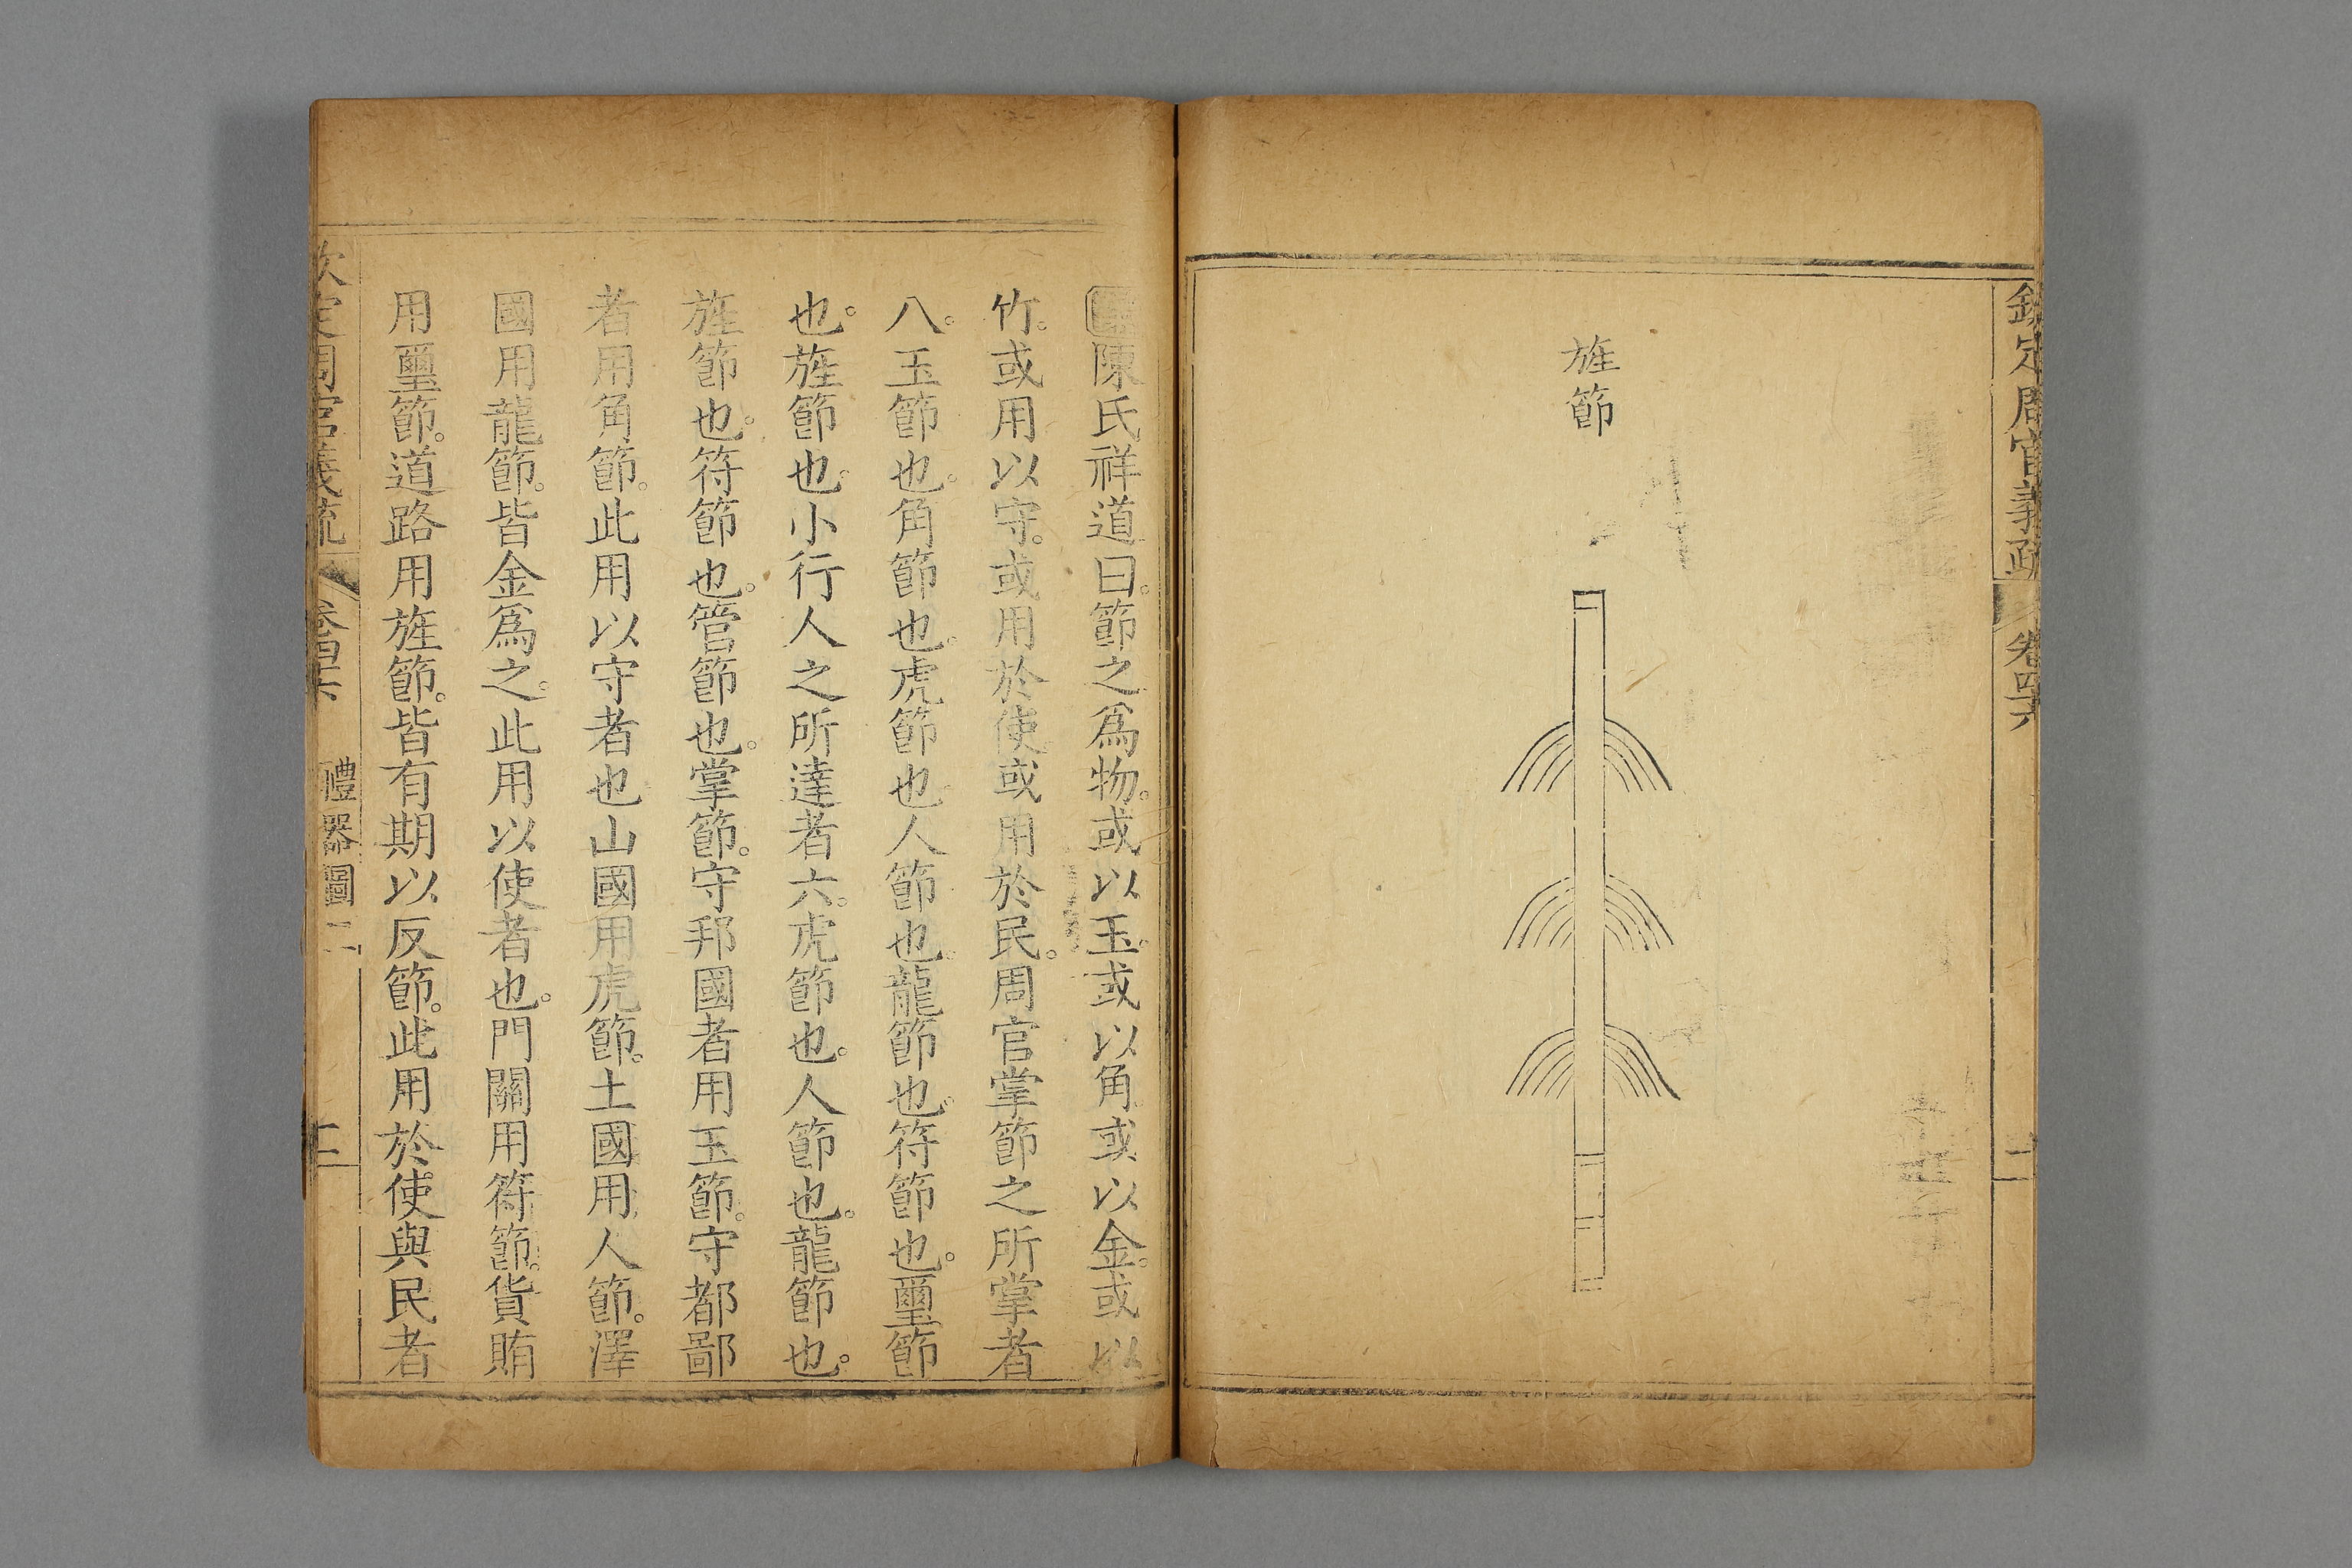 欽定周官義疏 卷四十六 二
旌節
陳氏祥道曰。節之爲物。或以玉。或以角。或以金。或以
竹。或用以守。或用於使。或用於民。周官掌節之所掌者
八。玉節也。角節也。虎節也。人節也。龍節也。符節也。璽節
也。旌節也。小行人之所達者六。虎節也。人節也。龍節也。
旌節也。符節也。管節也。掌節。守邦國者用玉節。守都鄙
者用角節。此用以守者也。山國用虎節。土國用人節。澤
國用龍節。皆金爲之。此用以使者也。門關用符節。貨賄
用璽節。道路用旌節。皆有期以反節。此用於使與民者
欽定周官義疏 卷四十六 禮器圖二 三